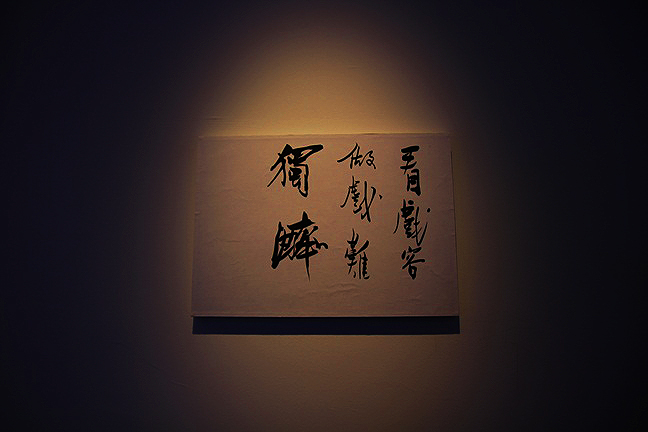 看戲容
做戲難
獨